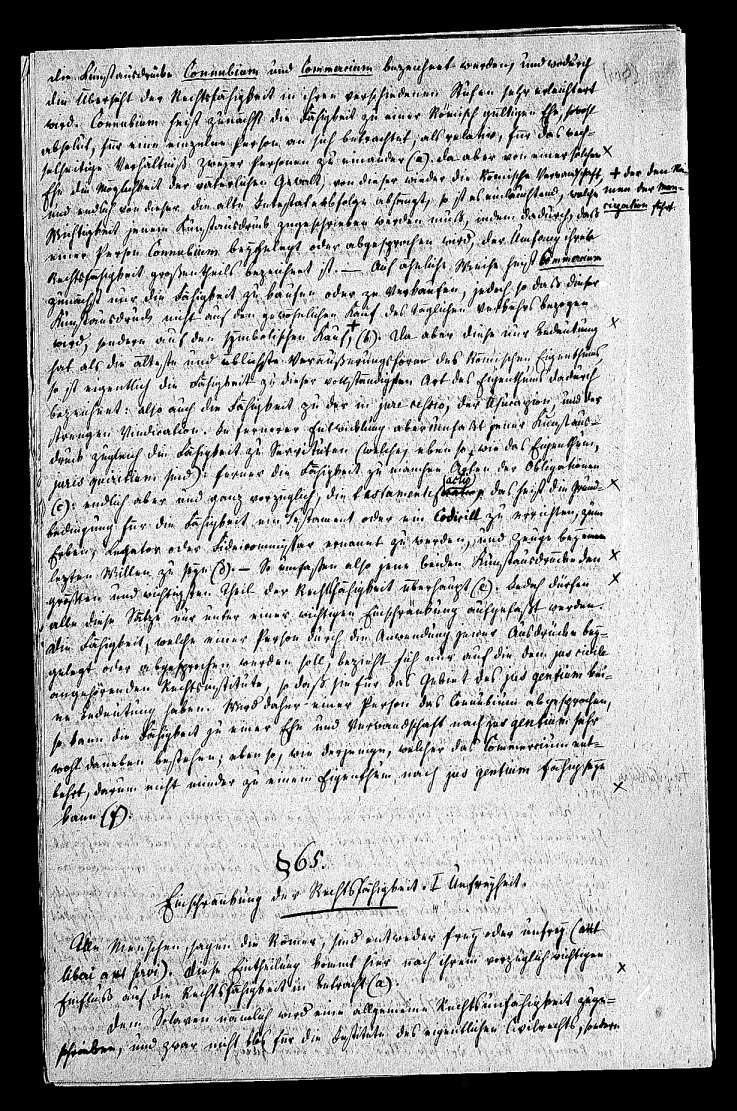 die Kunstausdrücke Connubium und Commercium bezeichnet werden, und wodurch
die Übersicht der Rechtsfähigkeit in ihren verschiedenen Stufen sehr erleichtert
wird. Connubium heißt zunächst die Fähigkeit zu einer Römisch gültigen Ehe, sowohl
absolut, für eine einzelne Person an sich betrachtet, als relativ, für das wech-
selseitige Verhältniß zweyer Personen zu einander (a). Da aber von einer solchen
Ehe die Möglichkeit der väterlichen Gewalt, von dieser wieder die Römische Verwandschaft,
+ der den Na-
men der
führt.
und endlich von dieser die alte Intestaterbfolge abhängt, so ist es einleuchtend, welche
Wichtigkeit jenem Kunstausdruck zugeschrieben werden muß, indem dadurch, daß
einer Person Connubium beygelegt oder abgesprochen wird, der Umfang ihrer
Rechtsfähigkeit großentheils bezeichnet ist. — Auf ähnliche Weise heißt Commercium
zunächst nur die Fähigkeit zu kaufen oder zu verkaufen, jedoch so daß dieser
Kunstausdruck nicht auf den gewöhnlichen Kauf des täglichen Verkehrs bezogen
wird, sondern auf den symbolischen Kauf, + (b). Da aber diese nur Bedeutung
hat als die älteste und üblichste Veräußerungsform des Römischen Eigenthums,
so ist eigentlich die Fähigkeit zu dieser vollständigsten Art des Eigenthums dadurch
bezeichnet: also auch die Fähigkeit zu der in jure cessio, der Usucapion und der
strengen Vindication. In fernerer Entwicklung aber umfaßt jener Kunstaus-
druck zugleich die Fähigkeit zu Servituten (welche, eben so, wie das Eigenthum,
juris quiritium sind): ferner die Fähigkeit zu manchen Arten der Obligationen
(c): endlich aber und ganz vorzüglich, die testamentifactio, das heißt die Grund-
bedingung für die Fähigkeit ein Testament oder ein Codicill zu errichten, zum
Erben, Legatar oder Fideicommissar ernannt zu werden, und Zeuge bey einem
letzten Willen zu seyn (d). — So umfassen also jene beiden Kunstausdrücke den
größten und wichtigsten Theil der Rechtsfähigkeit überhaupt (e). Jedoch dürfen
alle diese Sätze nur unter einer wichtigen Einschränkung aufgefaßt werden.
Die Fähigkeit, welche einer Person durch die Anwendung jener Ausdrücke bey-
gelegt oder abgesprochen werden soll, bezieht sich nur auf die dem jus civile
angehörenden Rechtsinstitute, so daß sie für das Gebiet des jus gentium kei-
ne Bedeutung haben. Wird daher einer Person das Connubium abgesprochen,
so kann die Fähigkeit zu einer Ehe und Verwandschaft nach jus gentium sehr
wohl daneben bestehen; eben so, wie derjenige, welcher das Commercium ent-
behrt, darum nicht minder zu einem Eigenthum nach jus gentium fähig seyn
kann (f).
§ 65.
Einschränkung der Rechtsfähigkeit. I Unfreyheit.
Alle Menschen, sagen die Römer, sind entweder frey oder unfrey (aut
liberi aut servi). Diese Eintheilung kommt hier nach ihrem vorzüglich wichtigen
Einfluß auf die Rechtsfähigkeit in Betracht (a).
Dem Sclaven nämlich wird eine allgemeine Rechtsunfähigkeit zuge-
schrieben, und zwar nicht blos für die Institute des eigentlichen Civilrechts, sondern